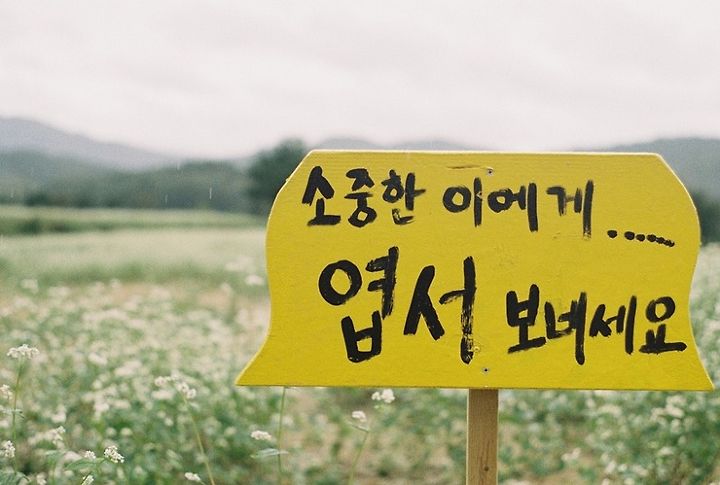 소중한 이에게......
엽서 보내세요